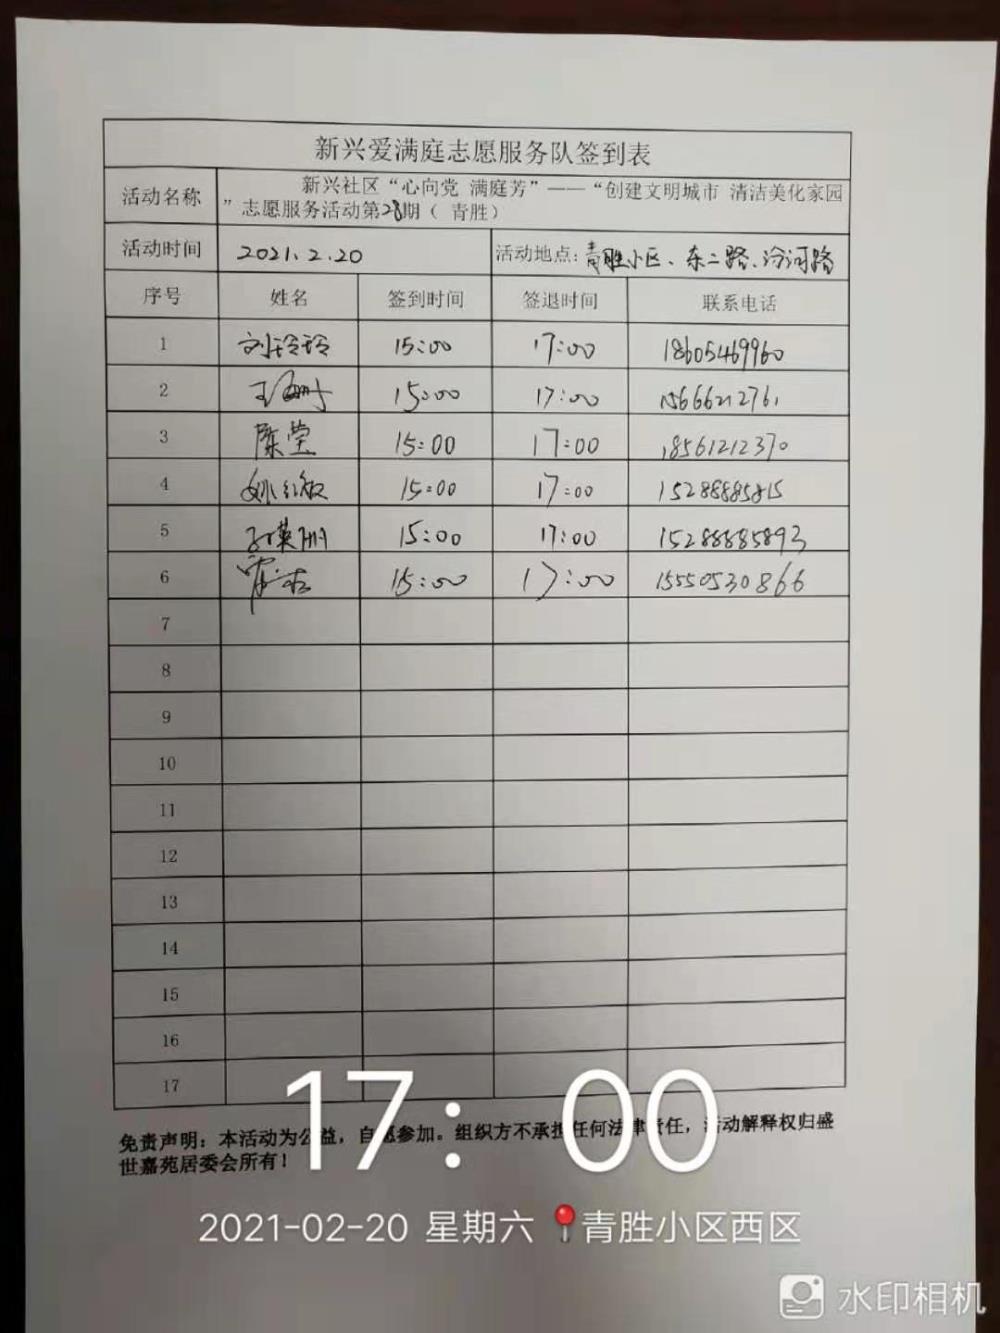 新兴爱满庭志愿服务队签到表
活动名称 新兴社区“心向党 满庭芳”——“创建文明城市 清洁美化家园
”志愿服务活动第28期（ 青胜）
活动时间 2021.2.20 活动地点：青胜小区、东二路、汾河路
序号 姓名 签到时间 签退时间 联系电话
1 刘玲玲 15:00 17:00 18605469960
2 王珊 15:00 17:00 15666212761
3 陈莹 15:00 17:00 18561212370
4 姚红敏 15:00 17:00 15288885815
5 孙英洲 15:00 17:00 15288885893
6 15:00 17:00 15550530866
7
8
9
10
11
12
13
14
15
16
17
17:00
免责声明：本活动为公益，自愿参加。组织方不承担任何法律责任，活动解释权归盛
世嘉苑居委会所有！
2021-02-20 星期六 青胜小区西区
水印相机